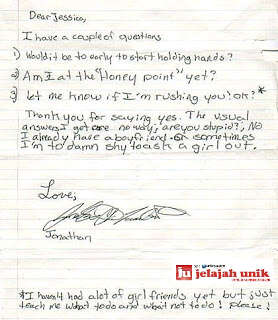 Dear Jessica,
I have a couple of questions
1) Would it be to early to start holding hands?
2) Am I at the "Honey point" yet?
3) let me know if I'm rushing you! OK? *
Thank you for saying yes. The usual
answers I get are no way, are you stupid?, NO
I already have a boyfriend. Or sometimes
I'm to damn shy to ask a girl out.
Love,
Jonathan
ju jelajah unik
*I havent had alot of girl friends yet but just
teach me what to do and what not to do! please!